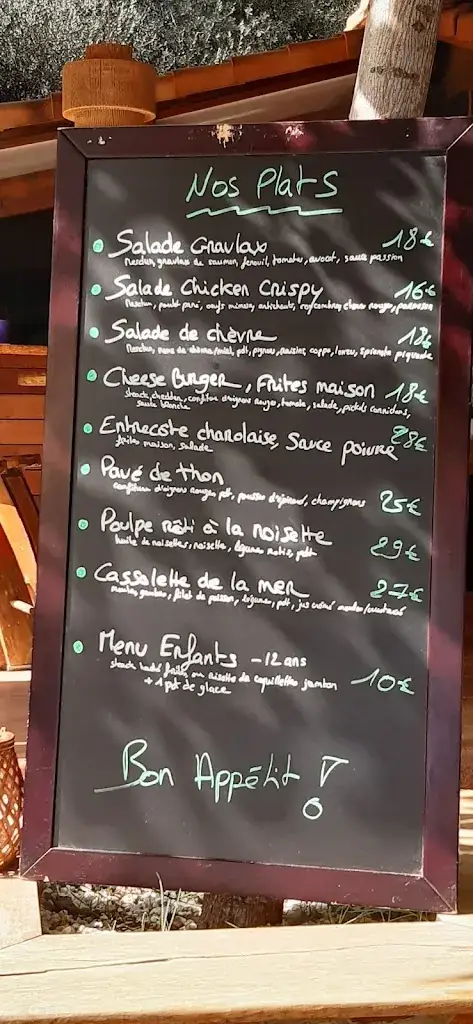 Nos Plats
Salade Gravlax 18€
Mesclun, gravlax de saumon, fenouil, tomates, avocat, sauce passion
Salade Chicken Crispy 16€
Mesclun, poulet pané, oeufs mimosa, artichauts, concombres, choux rouge, parmesan
Salade de chèvre 18€
Mesclun, pdt, pignons, raisins, coppa, piquante
Cheese Burger, Frites maison 18€
steak, cheddar, confiture d'oignons rouges, tomate, salade, pickels cornichons,
sauce blanche
Entrecôte charolaise, Sauce poivre 28€
frites maison, salade
Pavé de thon
confiture d'oignons rouges, pdt, pousses d'épinard, champignons 25€
Poulpe rôti à la noisette
huile de noisettes, noisette, légumes rotis, pdt 29€
Cassolette de la mer 27€
moules, gambas, filet de poisson, légumes, pdt, jus crémé
Menu Enfants -12 ans
steack haché frites ou risotto de coquillettes jambon 10€
+ 1 pot de glace
Bon Appétit !